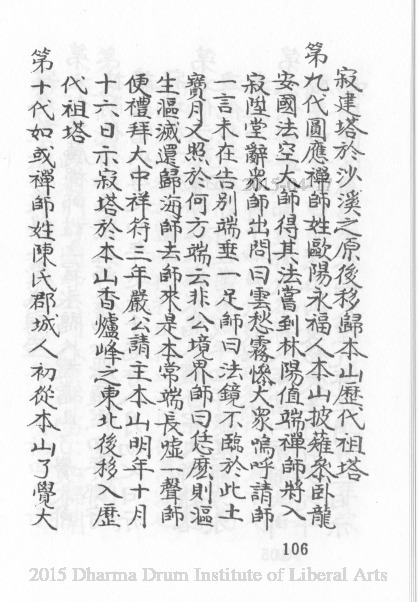 寂建塔於沙溪之原後移歸本山歷代祖塔
第九代圓應禪師姓歐陽永福人本山披薙叅臥龍
安國法空大師得其法嘗到林陽值端禪師將入
寂陞堂辭衆師出問曰雲愁霧慘大衆嗚呼請師
一言未在告別端垂一足師曰法鏡不臨於此土
寶月又照於何方端云非公境界師曰恁麽則漚
生漚滅還歸海師去師來是本常端長噓一聲師
便禮拜大中祥符三年嚴公請主本山明年十月
十六日示寂塔於本山香爐峰之東北後移入歷
代祖塔
第十代如或禪師姓陳氏郡城人初從本山了覺大
106
2015 Dharma Drum Institute of Liberal Arts